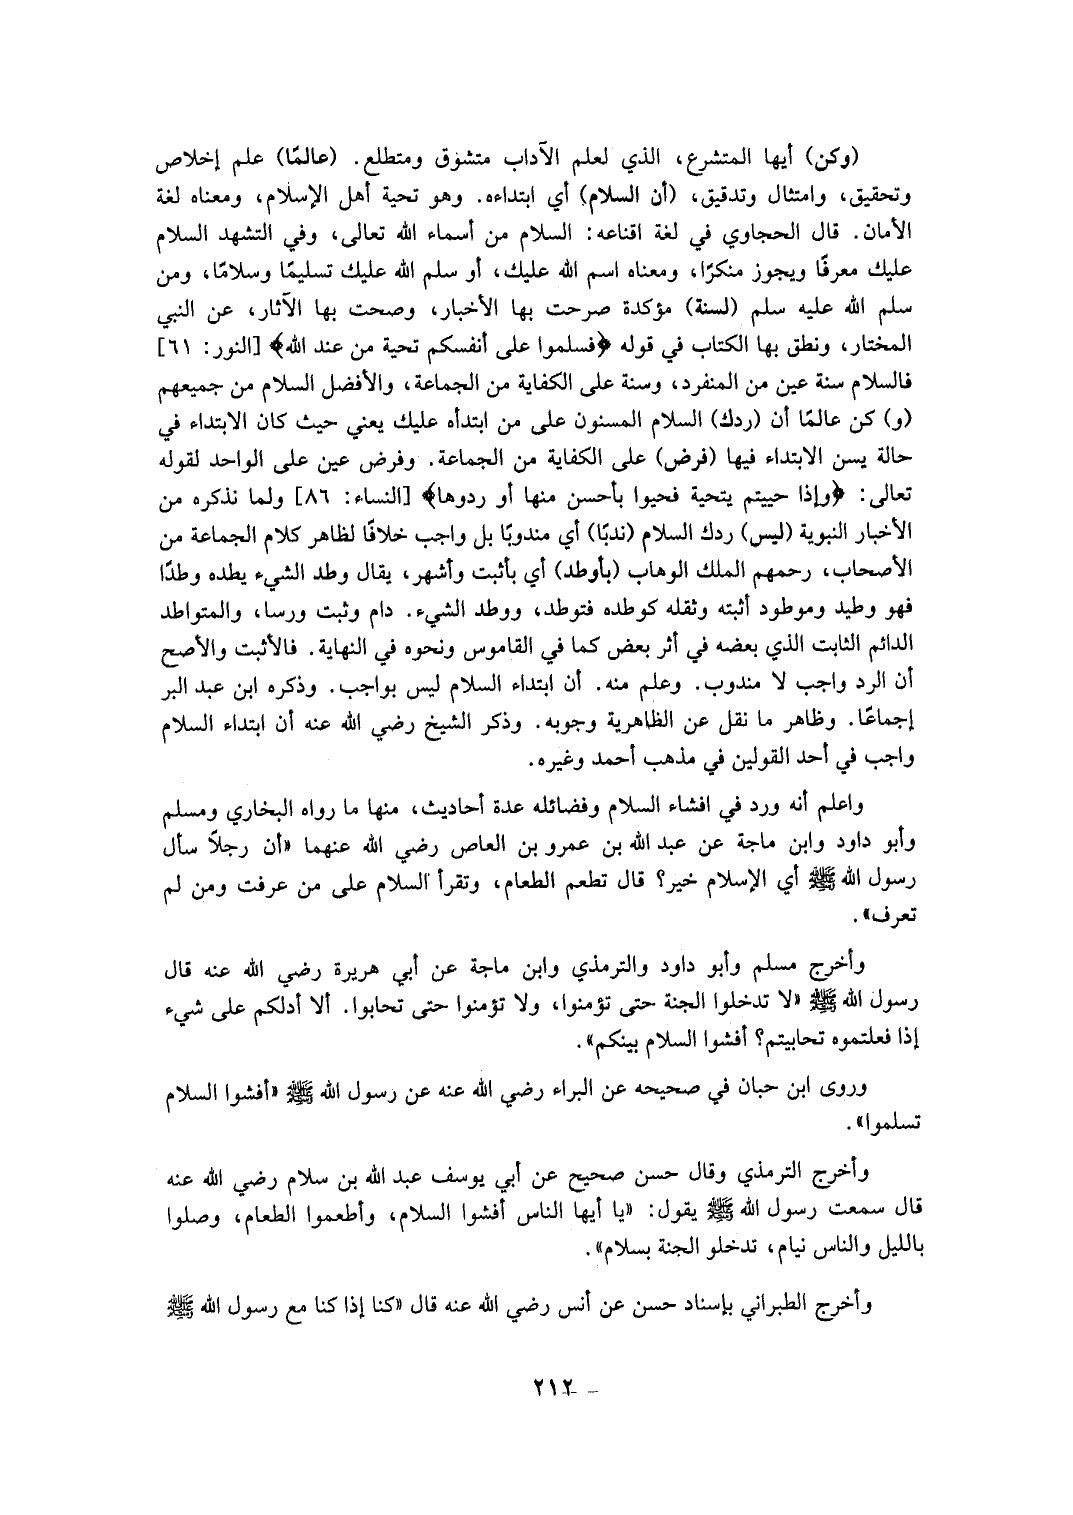 (وكن) أيها المتشرع، الذي لعلم الآداب متشوّق ومتطلع. (عالمًا) علم إخلاص
وتحقيق، وامتثال وتدقيق، (أن السلام) أي ابتداءه. وهو تحية أهل الإسلام، ومعناه لغة
الأمان. قال الحجاوي في لغة اقناعه: السلام من أسماء الله تعالى، وفي التشهد السلام
عليك معرفًا ويجوز منكرًا، ومعناه اسم الله عليك، أو سلم الله عليك تسليمًا وسلامًا، ومن
سلم الله عليه سلم (لسنة) مؤكدة صرحت بها الأخبار، وصحت بها الآثار، عن النبي
المختار، ونطق بها الكتاب في قوله ﴿فسلموا على أنفسكم تحية من عند الله﴾ [النور: ٦١]
فالسلام سنة عين من المنفرد، وسنة على الكفاية من الجماعة، والأفضل السلام من جميعهم
(و) كن عالمًا أن (ردك) السلام المسنون على من ابتدأه عليك يعني حيث كان الابتداء في
حالة يسن الابتداء فيها (فرض) على الكفاية من الجماعة. وفرض عين على الواحد لقوله
تعالى: ﴿وإذا حييتم يتحية فحيوا بأحسن منها أو ردوها﴾ [النساء: ٨٦] ولما نذكره من
الأخبار النبوية (ليس) ردك السلام (ندبًا) أي مندوبًا بل واجب خلافًا لظاهر كلام الجماعة من
الأصحاب، رحمهم الملك الوهاب (بأوطد) أي بأثبت وأشهر، يقال وطد الشيء يطده وطدًا
فهو وطيد وموطود أثبته وثقله كوطده فتوطد، ووطد الشيء. دام وثبت ورسا، والمتواطد
الدائم الثابت الذي بعضه في أثر بعض كما في القاموس ونحوه في النهاية. فالأثبت والأصح
أن الرد واجب لا مندوب. وعلم منه. أن ابتداء السلام ليس بواجب. وذكره ابن عبد البر
إجماعًا. وظاهر ما نقل عن الظاهرية وجوبه. وذكر الشيخ رضي الله عنه أن ابتداء السلام
واجب في أحد القولين في مذهب أحمد وغيره.
واعلم أنه ورد في افشاء السلام وفضائله عدة أحاديث، منها ما رواه البخاري ومسلم
وأبو داود وابن ماجة عن عبد الله بن عمرو بن العاص رضي الله عنهما «أن رجلاً سأل
رسول الله ﷺ أي الإسلام خير؟ قال تطعم الطعام، وتقرأ السلام على من عرفت ومن لم
تعرف».
وأخرج مسلم وأبو داود والترمذي وابن ماجة عن أبي هريرة رضي الله عنه قال
رسول الله ﷺ «لا تدخلوا الجنة حتى تؤمنوا، ولا تؤمنوا حتى تحابوا. ألا أدلكم على شيء
إذا فعلتموه تحابيتم؟ أفشوا السلام بينكم».
وروى ابن حبان في صحيحه عن البراء رضي الله عنه عن رسول الله ﷺ «أفشوا السلام
تسلموا».
وأخرج الترمذي وقال حسن صحيح عن أبي يوسف عبد الله بن سلام رضي الله عنه
قال سمعت رسول الله ﷺ يقول: «يا أيها الناس أفشوا السلام، وأطعموا الطعام، وصلوا
بالليل والناس نيام، تدخلو الجنة بسلام».
وأخرج الطبراني بإسناد حسن عن أنس رضي الله عنه قال «كنا إذا كنا مع رسول الله ﷺ
– ٢١٢